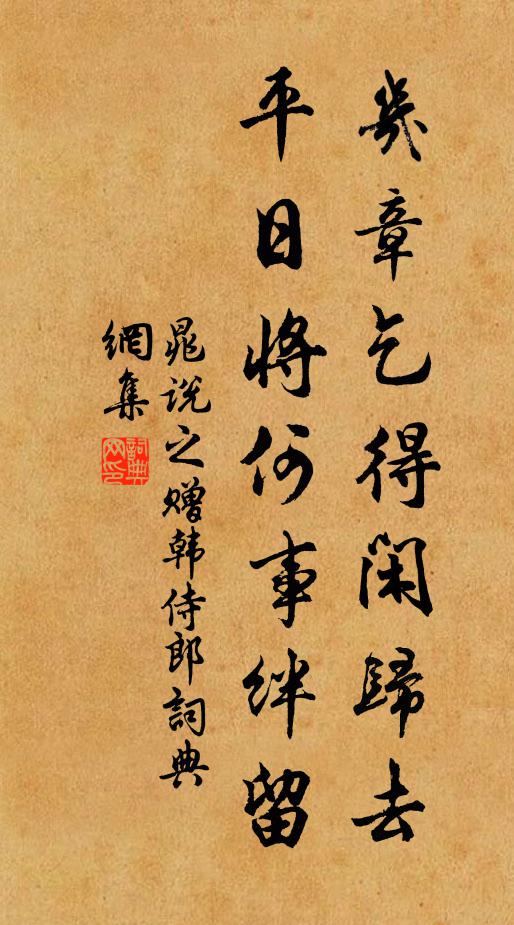 幾章乞得閑歸去
平日將何事絆留
晁說之贈韓侍郎詞典
網集
詞典
網印